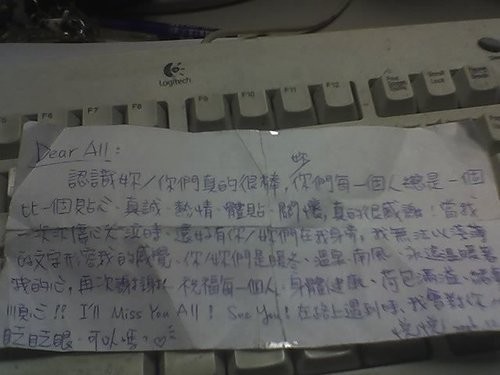 Logitech
F6 F7 F8 F9 F10 F11 F12 Print Screen Scroll Lock
Dear All:
認識妳/你們真的很棒,妳/你們每一個人總是一個
比一個貼心、真誠、熱情、體貼、關懷,真的很感謝!當我
一次次信心失 時,還好有你/妳們在我身旁,我無法以
的文字形容我的感覺,你/妳們是暖冬、溫 南風,永遠 暖著
我的心,再次謝謝! 祝福每一個人:身體健康、荷包滿溢、
順心!! I'll Miss You All! See You! 在路上遇到時,我會對你
眨眨眼,可以嗎?